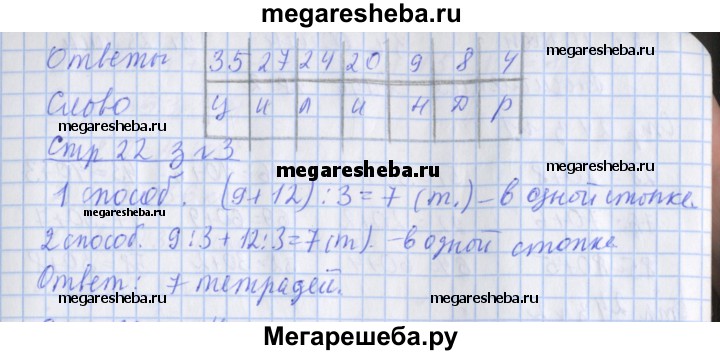 megaresheba.ru
Ответы 35 27 24 20 9 8 4
megaresheba.ru
Слово Ц и л и н д р
megaresheba.ru
Стр 22 з №3
megaresheba.ru
1 способ. (9+12):3=7 (т.) – в одной стопке.
megaresheba.ru
2 способ. 9:3+12:3=7(т). – в одной стопке
Ответ: 7 тетрадей.
megaresheba.ru megaresheba.ru
Мегарешеба.ру